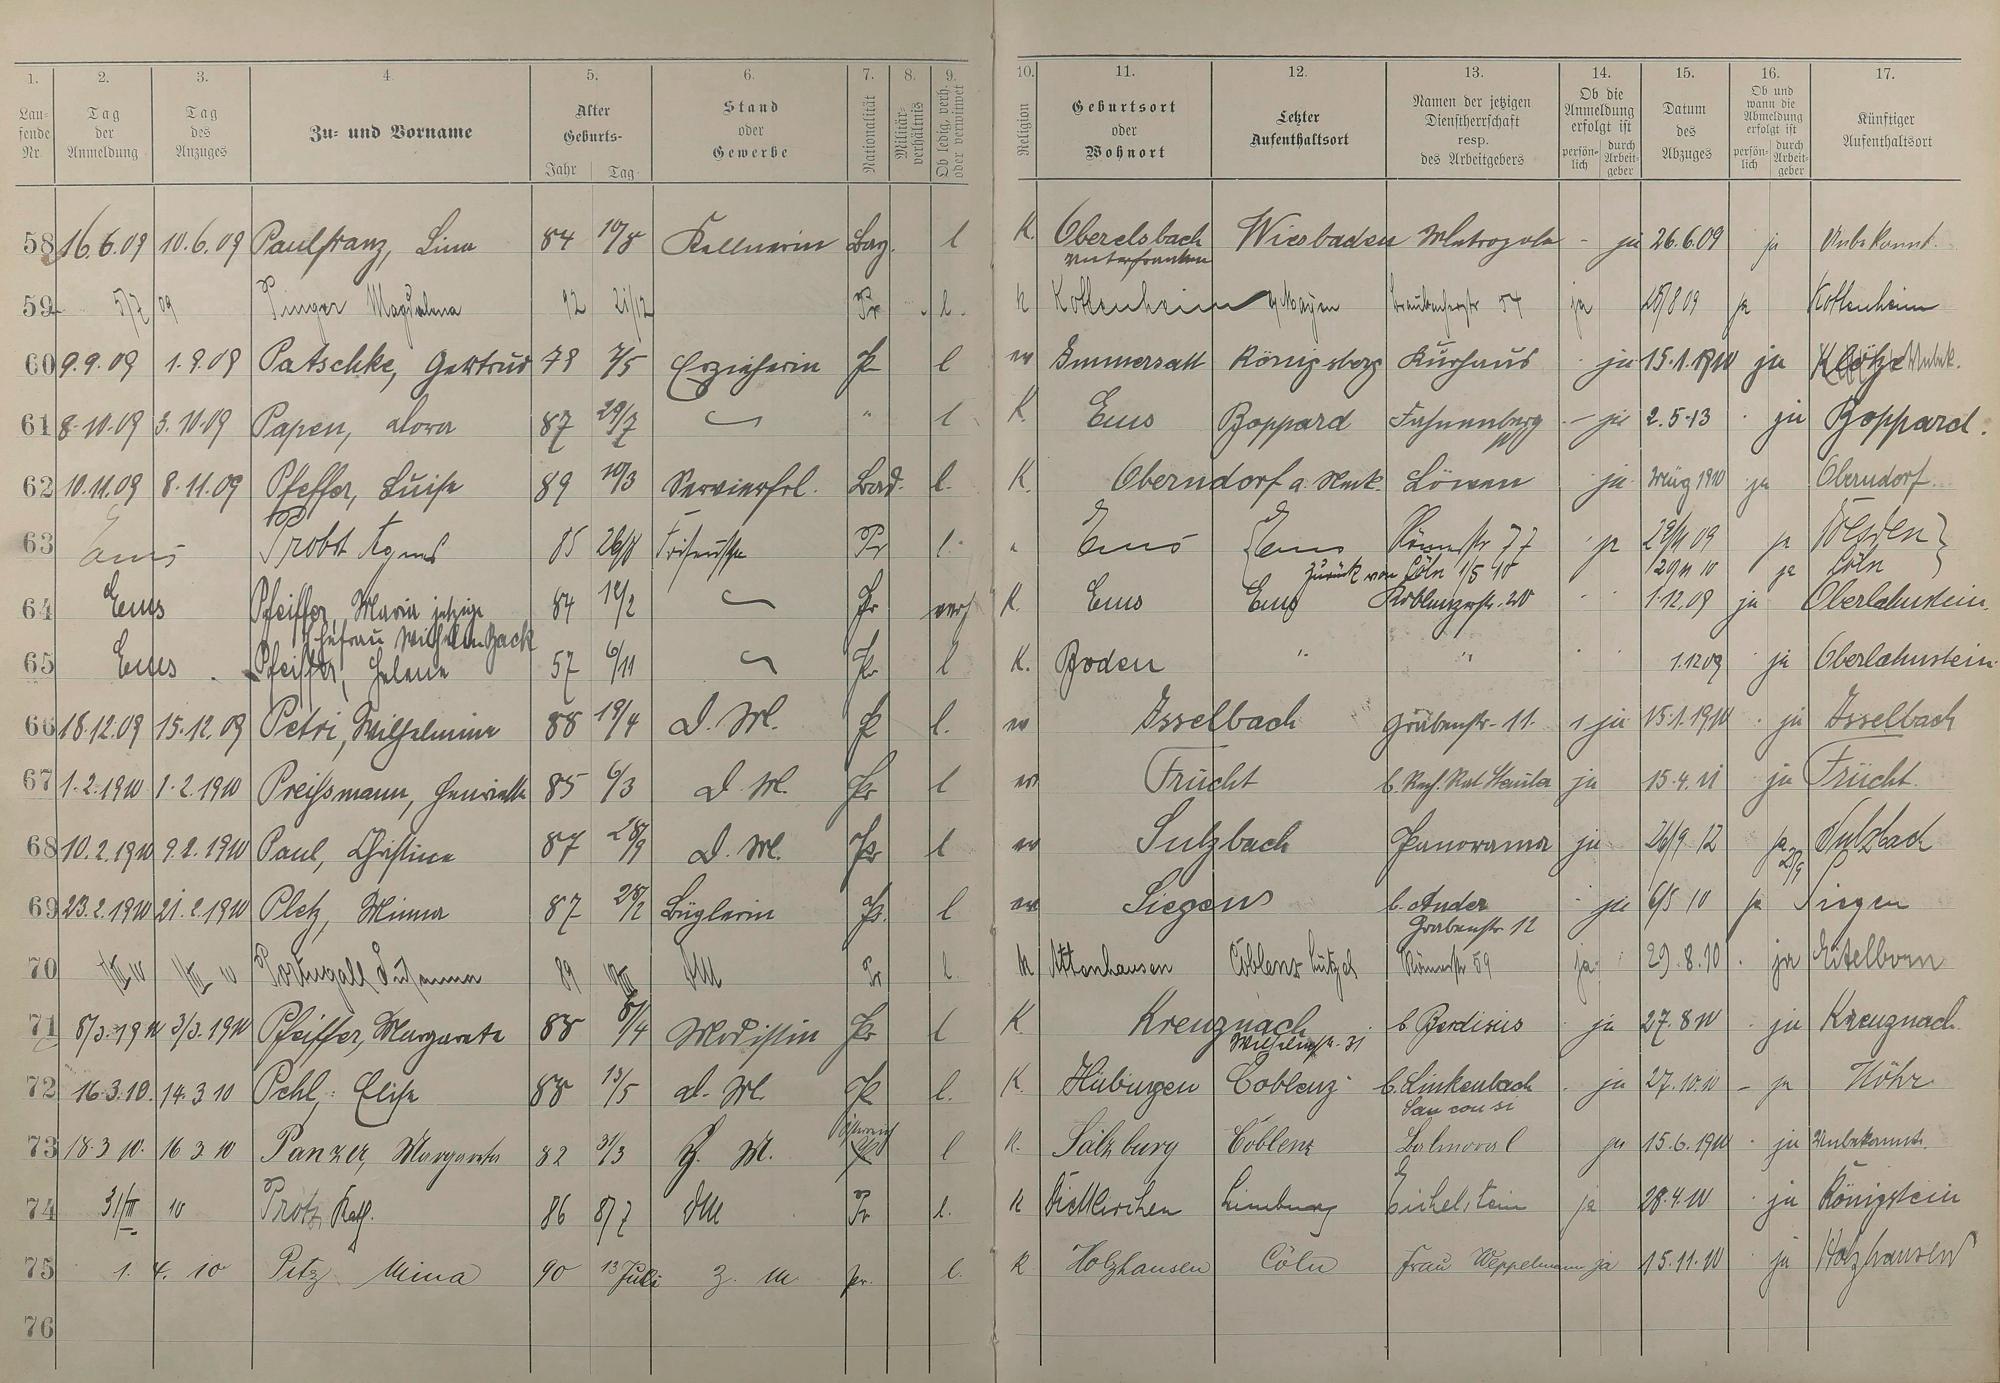 1. 2. 3. 4. 5. 6. 7. 8. 9. 10. 11. 12. 13. 14. 15. 16. 17.
Lau-
fende
Nr.
Tag
der
Anmeldung
Tag
des
Anzuges
Zu- und Vorname
Alter
Geburts-
Jahr Tag
Stand
oder
Gewerbe
Nationalität
Militär-
verhältnis
Ob ledig, verh.
oder verwitwet
Religion
Geburtsort
oder
Wohnort
Letzter
Aufenthaltsort
Namen der jetzigen
Dienstherrschaft
resp.
des Arbeitgebers
Ob die
Anmeldung
erfolgt ist
persön-
lich
durch
Arbeit-
geber
Datum
des
Abzuges
Ob und
wann die
Abmeldung
erfolgt ist
persön-
lich
durch
Arbeit-
geber
Künftiger
Aufenthaltsort
58 16.6.09 10.6.09 Paulfranz, Lina 84 10/8 Kellnerin Bay. l K. Oberelsbach Wiesbaden Metropole - ja 26.6.09 ja Unbekannt.
Unterfranken
59 5/7 09 Pinger Magdalena 92 21/12 Pr l. K Kottenheim b/ Mayen 54 ja 28/8 09 ja Kottenheim
60 9.9.09 1.9.09 Patschke, Gertrud 78 7/5 Erzieherin Pr l ev Immersatt Königsberg Kurhaus ja 15.1.1910 ja Unbek.
61 8.10.09 3.10.09 Papen, 87 29/7 " l K. Ems Boppard Fahnenberg - ja 2.5.13 ja Boppard.
62 10.11.09 8.11.09 Pfeffer, Luise 89 10/3 Servierfrl. Bad. l. K. Oberndorf a. Neck. Löwen ja 1910 ja Oberndorf.
63 Ems Probst Agnes 85 Friseuse Pr l. " Ems Ems Römerstr 77 ja 29/11 09 ja
zurück von Cöln 1/5 10 ja Cöln
64 Ems Pfeiffer, Maria jetzige 84 19/2 Pr verh K. Ems Ems Koblenzerstr. 20 1.12.09 ja Oberlahnstein.
Ehefrau Wilhelm Back
65 Ems Pfeiffer, Helene 57 6/11 Pr. l K. Boden " " 1.12 09 ja Oberlahnstein.
66 18.12.09 15.12.09 Petri, Wilhelmine 88 19/4 D. M. Pr l. ev Isselbach Grabenstr. 11. ja 15.1.1910 ja Isselbach
67 1.2.1910 1.2.1910 Preißmann, Henriette 85 6/3 D. M. Pr l ev Frücht ja 15.4.11 ja Frücht.
68 10.2.1910 9.2.1910 Paul, Christine 87 28/9 D. M. Pr l ev Sulzbach Panorama ja 26/9 12 ja Sulzbach
25/9
69 23.2.1910 21.2.1910 Pletz, Minna 87 28/2 Büglerin Pr. l ev Siegen b. Ander ja 6/5 10 ja Siegen
Grabenstr 12
70 Portugall Susanna 89 DM Pr l. K Attenhausen Coblenz Lützel Römerstr 59 ja 29.8.10 ja Eitelborn
71 8/3.1910 3/3.1910 Pfeiffer, Margarete 88 8/4 Modistin Pr l K. Kreuznach b. Berdisius ja 27.8 10 ja Kreuznach.
Wilhelmstr. 31
72 16.3.10. 14.3 10 Pehl, Elise 88 13/5 D. M. Pr l. K. Hübingen Coblenz b. Linkenbach ja 27.10.10 - ja Höhr
San cou si
73 18.3 10. 16 3 10 Panzer, Margareta 82 31/3 Z. M. Österreich l K. Salzburg Coblenz Balmoral ja 15.6.1910 ja Unbekannt.
74 31/III 10 Protz Kath. 86 8/7 DM Pr l. K Dietkirchen Limburg Eichelstein ja 28.4.10 ja Königstein
75 1. 4. 10 Petz Mina 90 13 Juli Z. M pr. l. K Holzhausen Cöln Frau Weppelmann ja 15.11.10 ja Holzhausen
76